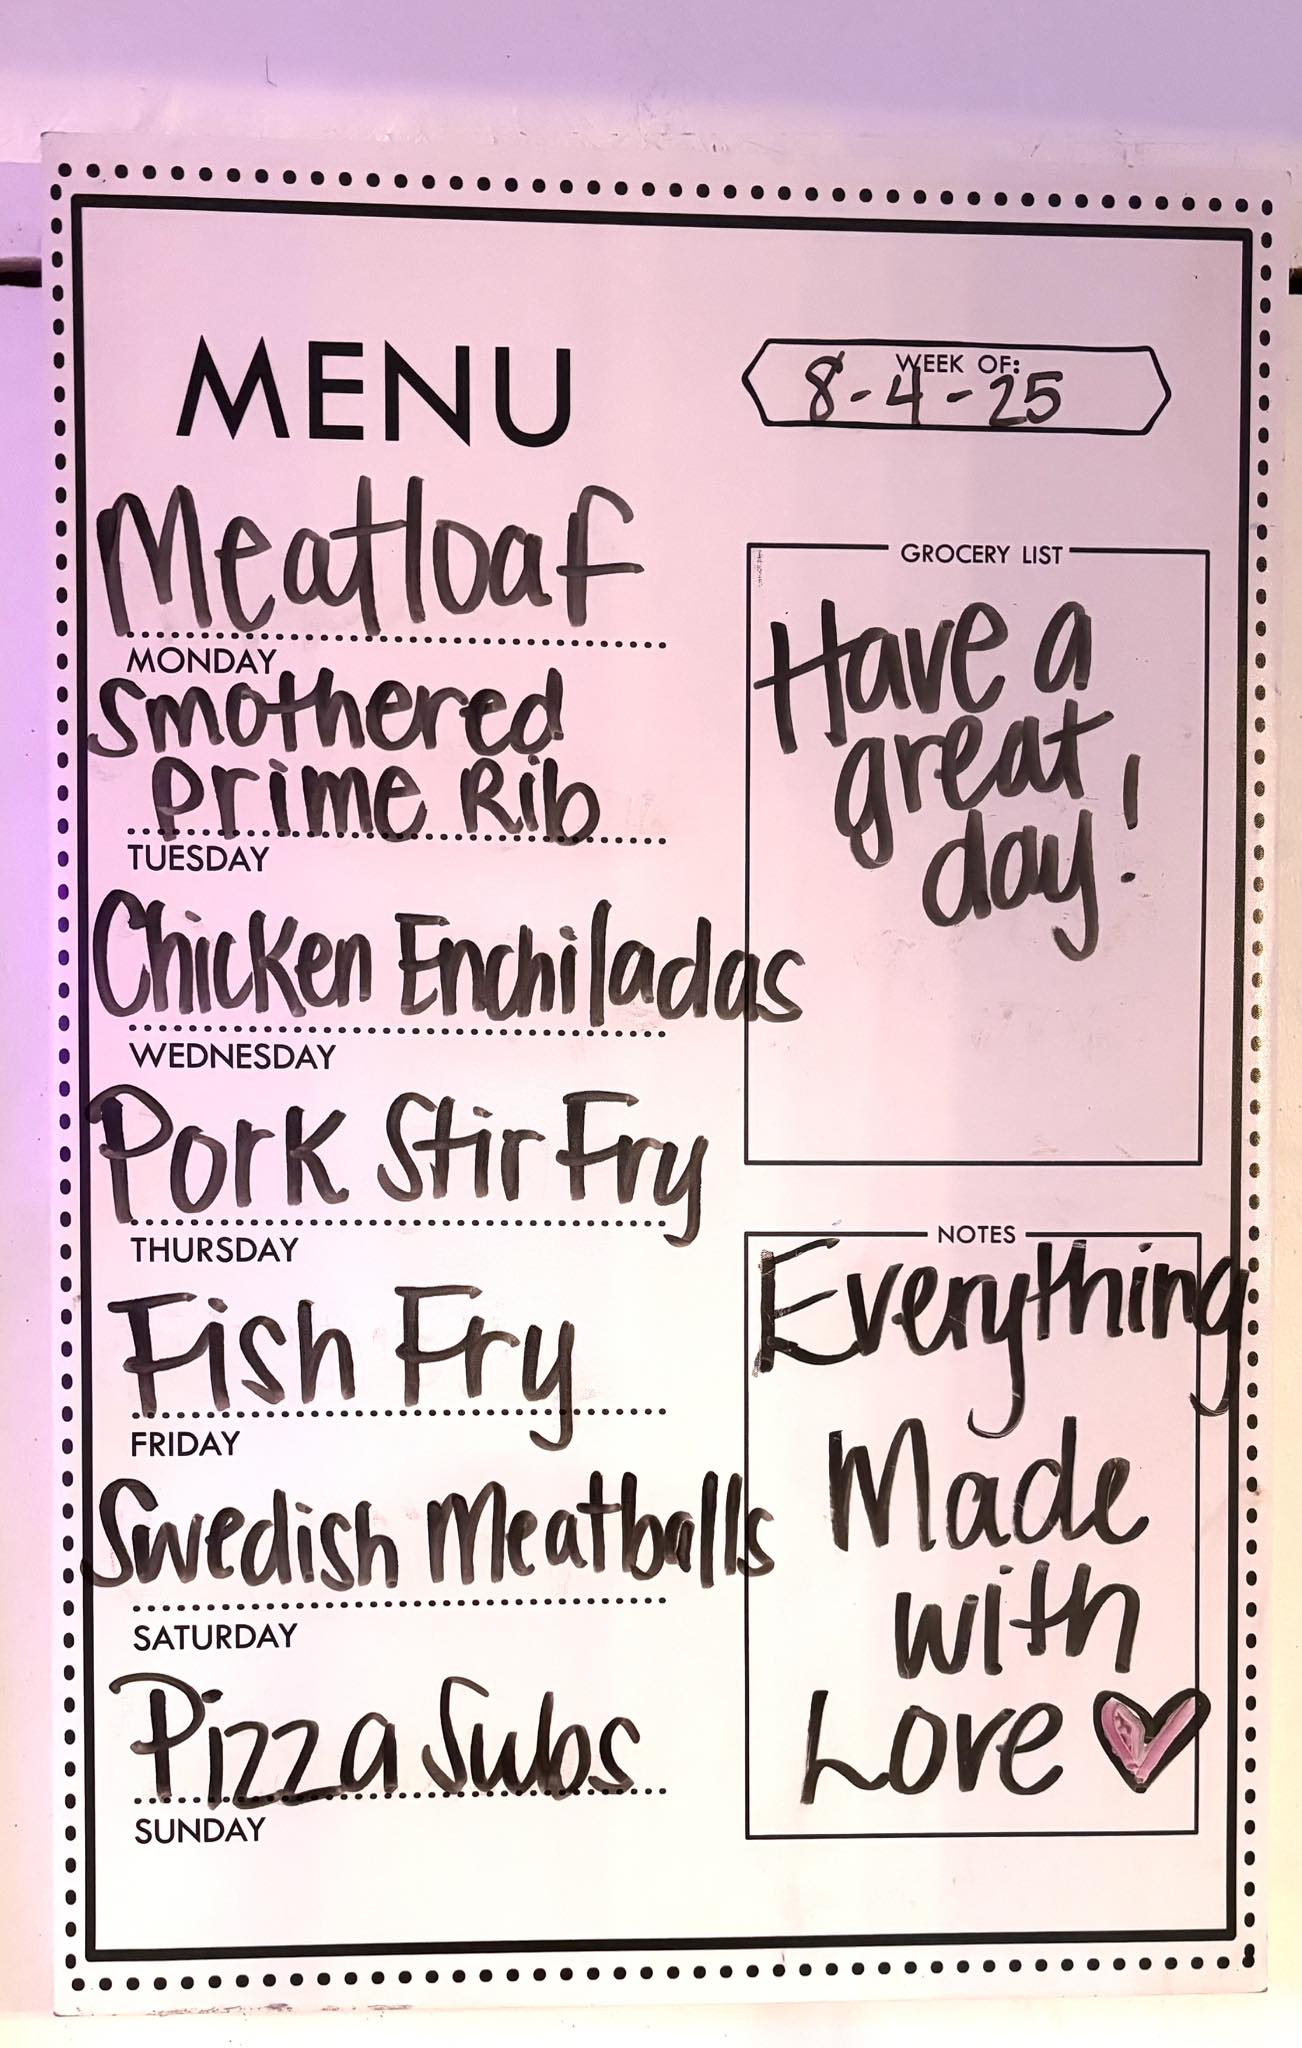 MENU
WEEK OF:
8-4-25
Meatloaf
MONDAY
Smothered
Prime Rib
TUESDAY
Chicken Enchiladas
WEDNESDAY
Pork Stir Fry
THURSDAY
Fish Fry
FRIDAY
Swedish Meatballs
SATURDAY
Pizza Subs
SUNDAY
GROCERY LIST
Have a
great
day!
NOTES
Everything
Made
with
Love